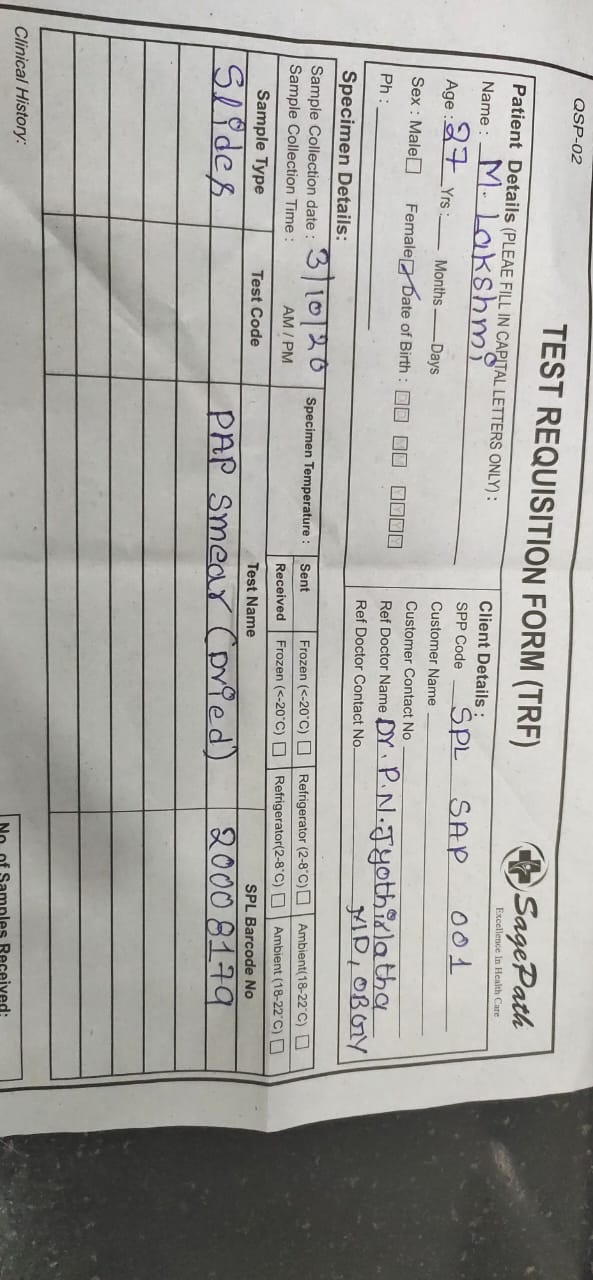 QSP-02
TEST REQUISITION FORM (TRF)
SagePath
Excellence In Health Care
Patient Details (PLEAE FILL IN CAPITAL LETTERS ONLY) :
Name : M. Lakshmi
Age : 27 Yrs : Months Days
Sex : Male Female Date of Birth : D D M M Y Y Y Y
Ph :
Client Details :
SPP Code SPL SAP 001
Customer Name
Customer Contact No
Ref Doctor Name Dr. P.N. Jyothirlatha
MD, OBGY
Ref Doctor Contact No.
Specimen Details:
Sample Collection date : 3/10/20
Sample Collection Time : AM / PM
Specimen Temperature : Sent Frozen (<-20°C) Refrigerator (2-8°C) Ambient(18-22°C)
Received Frozen (<-20°C) Refrigerator(2-8°C) Ambient (18-22°C)
Sample Type Test Code Test Name SPL Barcode No
Slides PAP Smear (Dried) 20008179
Clinical History:
No. of Samples Received: